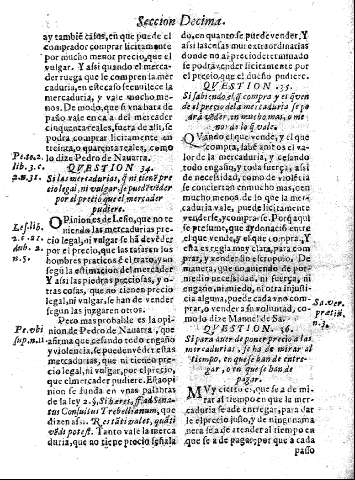 Seccion Decima.
ay tambiē casos, en que puede el
comprador comprar licitamente
por mucho menor precio, que el
vulgar. Y assi quando el merca-
der ruega que le compren la mer-
caduria, en este caso se enuilece la
mercaduria, y vale mucho me-
nos. De modo, que si vna bara de
paño vale en casa del mercader
cincuenta reales, fuera de alli, se
podra comprar licitamente en
treinta, o quarenta reales, como
lo dize Pedro de Nauarra.
Pe.to.2.
lib. 3. c.
2. n. 31.
QVESTION 34.
Si las mercadurias, q̄ ni tienē pre
cio legal, ni vulgar se puedē vēder
por el precio que el mercader
pudiere.
OPinion es de Lesio, que no te
niendo las mercadurias pre-
cio legal, ni vulgar se há de vēder
por el precio, que las tassaren los
hombres practicos ē el trato, y un
segū la estimacion del mercader
Y assi las piedras preciosas, y o-
tras cosas, que no tienen precio
legal, ni vulgar, se han de vender
segun las juzgaren otros.
Les. lib.
2. c. 21.
dub. 2.
n. 5.
Pero mas probable es la opi
nion de Pedro de Nauarra, que
afirma que cessando todo engaño
y violencia, se pueden vēder estas
mercadurias, que ni tienen pre-
cio legal, ni vulgar, por el precio,
que el mercader pudiere. Esta opi
nion se funda en vnas palabras
de la ley 2. §. Si hæres, ff. ad Sena
tus Consultus Trebellianum, que
dizen assi. Res tāti valet, quāti
vēdi potest. Tanto vale la merca
duria, que no tiene precio señala
Pe. vbi
sup. n. 11
do, en quanto se puede vender, Y
assi las cosas muy extraordinarias
donde no ay precio determinado
se podrā vender licitamente por
el precio, que el dueño pudiere.
QVESTION 35.
Si sabiendo el q̄ compra y el q̄ ven
de el precio de la mercaduria se po
dra vēder, en mucho mas, o me-
no de lo q̄ vale.
QVando el que vende, y el que
compra, sabē ambos el va-
lor de la mercaduria, y cessando
todo engaño, y toda fuerça, assi
de necessidad, como de violēcia
se conciertan en mucho mas, con
mucho menos, de lo que la mer-
caduria vale, puede licitamente
venderse, y compra-se. Porq̄ aqui
se presume, que ay donaciō entre
el que vende, y el que compra. Y
esta es regla muy clara, para com-
prar, y vender siu escrupulo. De
manera, que no auiendo de por-
medio necessidad, ni fuerça, ni
engaño, ni miedo, ni otra injusti-
cia alguna, puede cada vno com-
prar, o vender a su voluntad, co-
mo lo dize Manuel de Sa.
Sa. ver.
pretiū.
n. 3.
QVESTION 36.
Si para auer de poner precio a las
mercadurias, se ha de mirar al
tiempo, en que se han de entre-
gar, o en que se han de
pagar.
MVy cierto es, que se a de mi-
rar al tiempo en que la mer-
caduria se ade entregar, para dar
le el precio justo, y de ninguna
manera se a de atender al tiempo en
que se a de pagar; por que a cada
passo